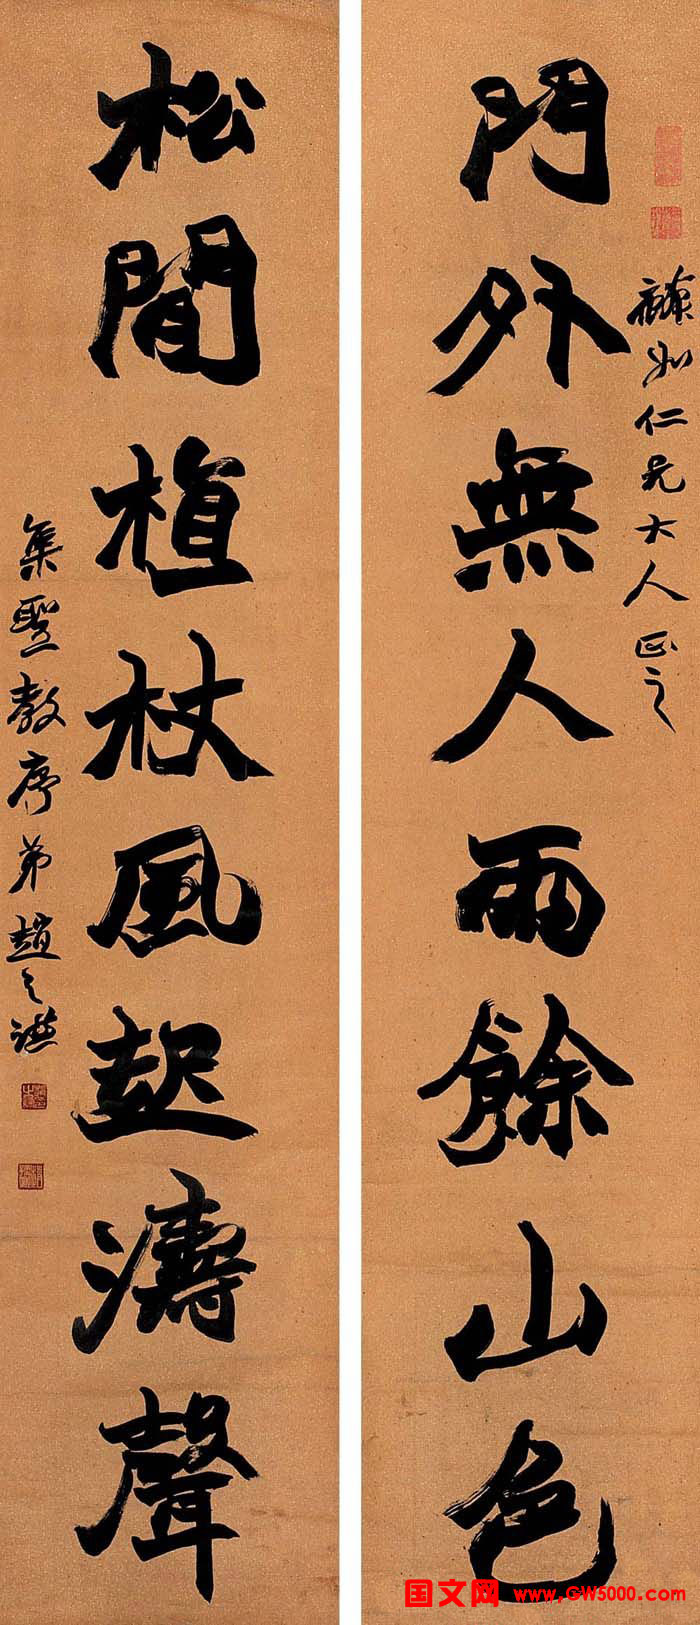 門外無人雨餘山色
仁兄大人正之
松間植杖風起濤聲
集聖教序弟趙之謙
国文网 www.GW5000.com